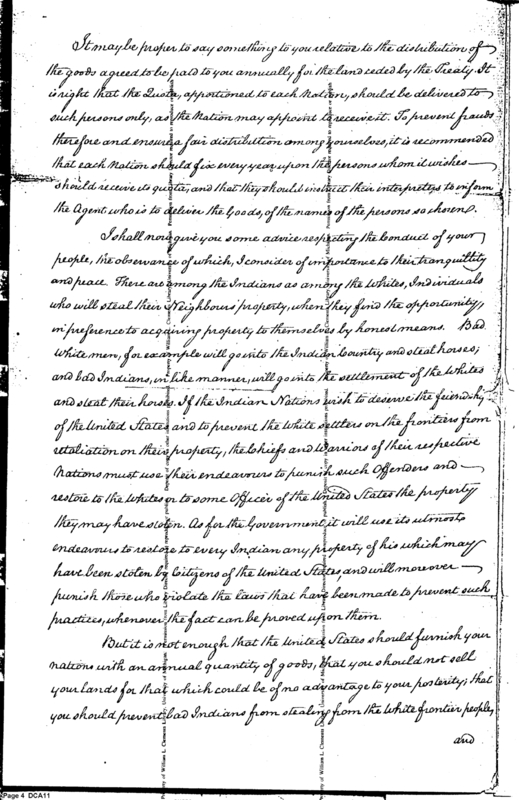 It may be proper to say something to you relative to the distribution of
the goods agreed to be paid to you annually for the land ceded by the Treaty. It
is right that the Quota, apportioned to each Nation, should be delivered to
such persons only, as the Nation may appoint to receive it. To prevent frauds
therefore and ensure a fair distribution among yourselves, it is recommended
that each Nation should fix every year upon the persons whom it wishes
should receive its quota, and that they should instruct their interpreters to inform
the Agent who is to deliver the Goods, of the names of the persons so chosen.
I shall now give you some advice respecting the Conduct of your
people, the observance of which, I consider of importance to their tranquillity
and peace. There are among the Indians as among the Whites, Individuals
who will steal their Neighbours' property, when they find the opportunity,
in preference to acquiring property to themselves by honest means. Bad
White men, for example will go into the Indian Country and steal horses;
and bad Indians, in like manner, will go into the settlement of the Whites
and steal their horses. If the Indian Nations wish to deserve the friendship
of the United States and to prevent the white settlers on the frontiers from
retaliation on their property, the Chiefs and Warriors of their respective
Nations must use their endeavours to punish such Offenders and
restore to the Whites or to some Officer of the United States the property
they may have stolen. As for the Government it will use its utmost
endeavours to restore to every Indian any property of his which may
have been stolen by Citizens of the United States, and will moreover
punish those who violate the laws that have been made to prevent such
practices, whenever the fact can be proved upon them.
But it is not enough that the United States should furnish your
nations with an annual quantity of goods, that you should not sell
your lands for that which could be of no advantage to your posterity; that
you should prevent bad Indians from stealing from the White frontier people,
and
Property of William L. Clements
Page 4 DCA11